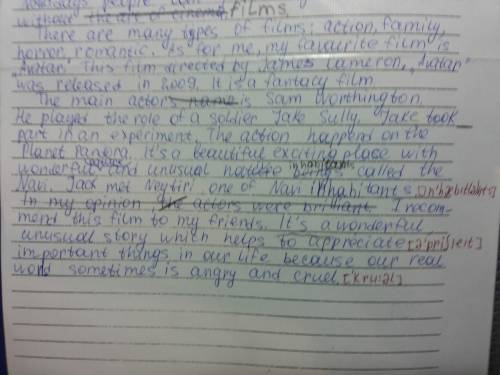 nowadays people can
without the art of cinema, films.
There are many types of films: action, family,
horror, romantic. As for me, my favourite film is
"Avatar". This film directed by James Cameron, "Avatar"
was released in 2009. It is a fantacy film
The main actors name is Sam Worthington.
He played the role of a soldier Jake Sully. Jake took
part in an experiment. The action happend on the
Planet Pandora. It's a beautiful exciting place with
wonderful and unusual called the
inhabitants
Navi. Jack met Neytiri, one of Navi inhabitants [ɪn'hæbɪtənts]
In my opinion the actors were brilliant. I recom-
mend this film to my friends. It's a wonderful
unusual story which helps to appreciate [ə'pri:ʃieit]
important things in our life because our real
world sometimes is angry and cruel. ['kru:əl]